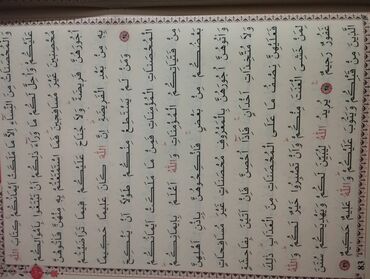 وَالْمُحْصَنَاتُ مِنَ النِّسَاءِ اِلَّا مَا مَلَكَتْ اَيْمَانُكُمْ كِتَابَ اللّٰهِ
عَلَيْكُمْ وَاُحِلَّ لَكُمْ مَا وَرَاءَ ذٰلِكُمْ اَنْ تَبْتَغُوا بِاَمْوَالِكُمْ
مُحْصِنِينَ غَيْرَ مُسَافِحِينَ فَمَا اسْتَمْتَعْتُمْ بِهِ مِنْهُنَّ فَاٰتُوهُنَّ
اُجُورَهُنَّ فَرِيضَةً وَلَا جُنَاحَ عَلَيْكُمْ فِيمَا تَرَاضَيْتُمْ
بِهِ مِنْ بَعْدِ الْفَرِيضَةِ اِنَّ اللّٰهَ كَانَ عَلِيمًا حَكِيمًا
وَمَنْ لَمْ يَسْتَطِعْ مِنْكُمْ طَوْلًا اَنْ يَنْكِحَ
الْمُحْصَنَاتِ الْمُؤْمِنَاتِ فَمِنْ مَا مَلَكَتْ اَيْمَانُكُمْ
مِنْ فَتَيَاتِكُمُ الْمُؤْمِنَاتِ وَاللّٰهُ اَعْلَمُ بِاِيمَانِكُمْ
بَعْضُكُمْ مِنْ بَعْضٍ فَانْكِحُوهُنَّ بِاِذْنِ اَهْلِهِنَّ
وَاٰتُوهُنَّ اُجُورَهُنَّ بِالْمَعْرُوفِ مُحْصَنَاتٍ غَيْرَ مُسَافِحَاتٍ
وَلَا مُتَّخِذَاتِ اَخْدَانٍ فَاِذَا اُحْصِنَّ فَاِنْ اَتَيْنَ بِفَاحِشَةٍ
فَعَلَيْهِنَّ نِصْفُ مَا عَلَى الْمُحْصَنَاتِ مِنَ الْعَذَابِ ذٰلِكَ
لِمَنْ خَشِيَ الْعَنَتَ مِنْكُمْ وَاَنْ تَصْبِرُوا خَيْرٌ لَكُمْ وَاللّٰهُ
غَفُورٌ رَحِيمٌ يُرِيدُ اللّٰهُ لِيُبَيِّنَ لَكُمْ وَيَهْدِيَكُمْ سُنَنَ
الَّذِينَ مِنْ قَبْلِكُمْ وَيَتُوبَ عَلَيْكُمْ وَاللّٰهُ عَلِيمٌ حَكِيمٌ
83